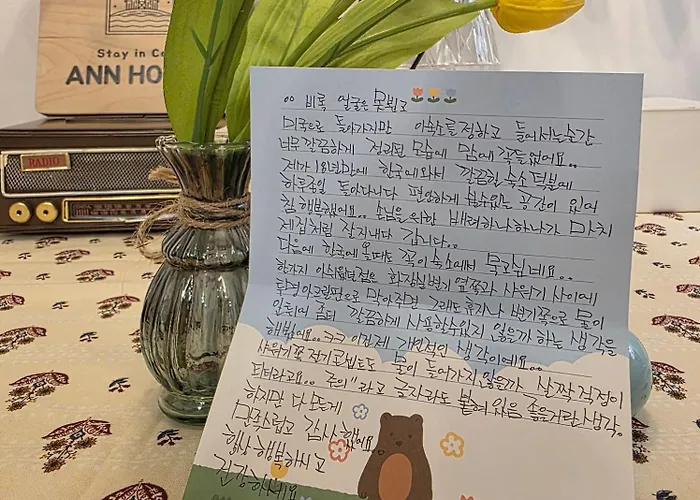 Stay in Co
ANN HO
RADIO
○○ 비록 얼굴은 못뵙고
미국으로 돌아가지만 이숙소를 정하고 들어서는순간
너무 깔끔하게 정리된 모습에 맘에 쏙들었어요..
제가 18년만에 한국에와서 깔끔한 숙소 덕분에
하루종일 돌아다니다 편안하게 쉴수있는 공간이 있어
참 행복했어요.. 손님을 위한 배려하나하나가 마치
제집처럼 잘지내다 갑니다..
다음에 한국에 올때도 꼭이숙소에서 묵고싶네요..
한가지 아쉬웠던점은 화장실변기 옆쪽과 샤워기 사이에
투명아크릴판으로 막아주면 그래도 휴지나 변기쪽으로 물이
안튀어 좀더 깔끔하게 사용할수있지 않을까 하는 생각을
해봤어요.. ㅋㅋ 이건제 개인적인 생각이예요..
샤워기쪽 전기코센트도 물이 들어가지 않을까 살짝 걱정이
되더라고요.. 주의"라고 글자라도 붙여 있음 좋을거란 생각.
하지만 다 또뜻게
만족스럽고 감사했어요.
항상 행복하시고
건강하세요